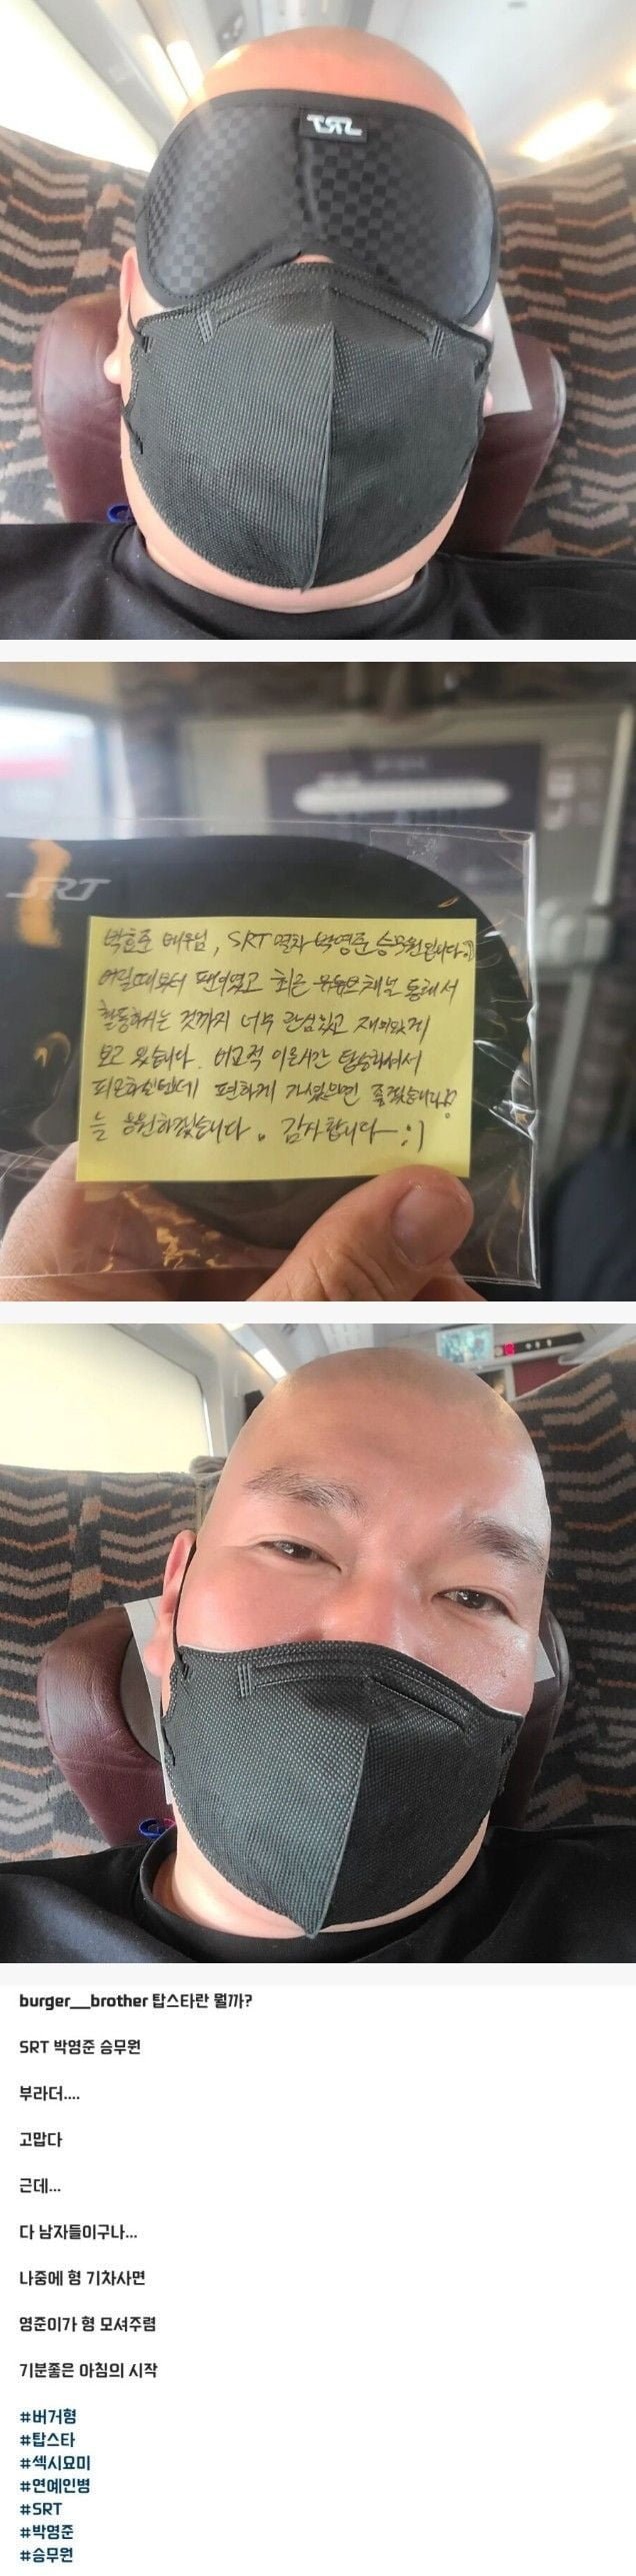 SRT
SRT
박효준 배우님, SRT 열차 박영준 승무원입니다.
어릴때부터 팬이였고 최근 유튜브 채널 통해서
활동하시는 것까지 너무 관심있고 재미있게
보고 있습니다. 비교적 이른시간 탑승하셔서
피곤하실텐데 편하게 가셨으면 좋겠습니다!
늘 응원하겠습니다. 감사합니다 :)
burger__brother 탑스타란 뭘까?
SRT 박영준 승무원
부라더....
고맙다
근데...
다 남자들이구나...
나중에 형 기차사면
영준이가 형 모셔주렴
기분좋은 아침의 시작
#버거형
#탑스타
#섹시요미
#연예인병
#SRT
#박영준
#승무원